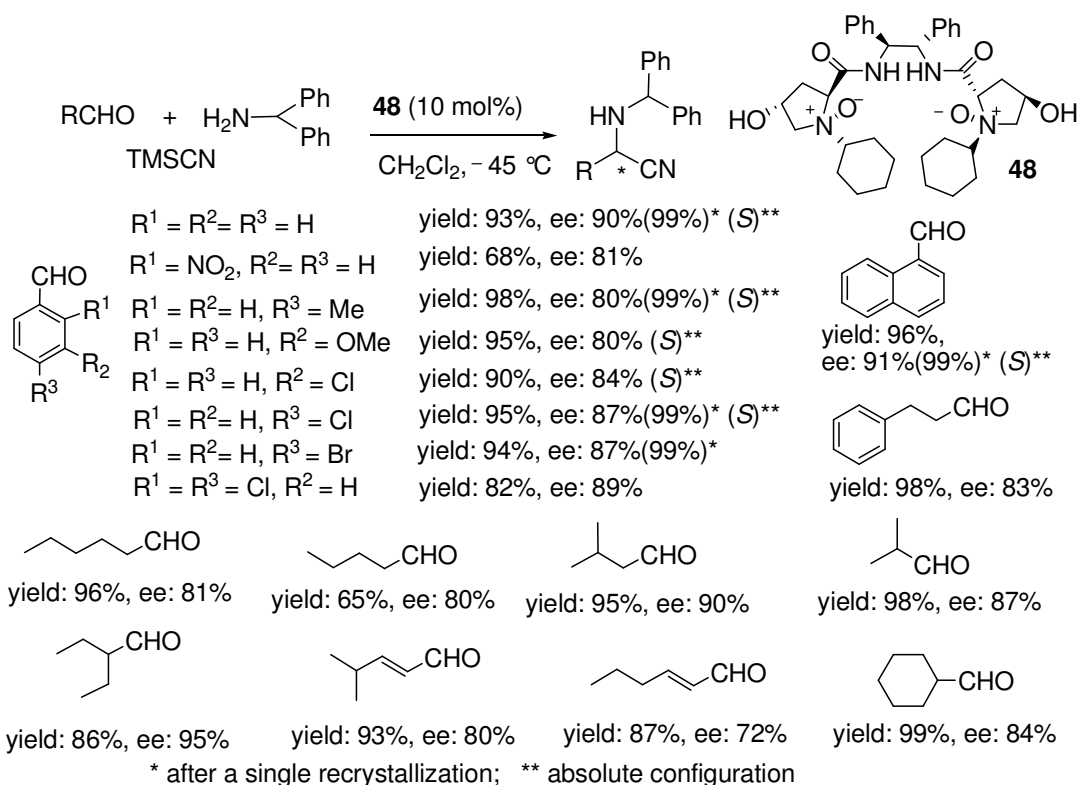 RCHO + H₂N Ph Ph
TMSCN
48 (10 mol%)
CH₂Cl₂, – 45 °C
Ph
HN Ph
R * CN
Ph Ph
O NH HN O
HO N⁺ O⁻ ⁻O N⁺ OH
48
CHO
R¹
R₂
R³
R¹ = R²= R³ = H yield: 93%, ee: 90%(99%)* (S)**
R¹ = NO₂, R²= R³ = H yield: 68%, ee: 81%
R¹ = R²= H, R³ = Me yield: 98%, ee: 80%(99%)* (S)**
R¹ = R³ = H, R² = OMe yield: 95%, ee: 80% (S)**
R¹ = R³ = H, R² = Cl yield: 90%, ee: 84% (S)**
R¹ = R²= H, R³ = Cl yield: 95%, ee: 87%(99%)* (S)**
R¹ = R²= H, R³ = Br yield: 94%, ee: 87%(99%)*
R¹ = R³ = Cl, R² = H yield: 82%, ee: 89%
CHO
yield: 96%,
ee: 91%(99%)* (S)**
CHO
yield: 98%, ee: 83%
CHO CHO CHO CHO
yield: 96%, ee: 81% yield: 65%, ee: 80% yield: 95%, ee: 90% yield: 98%, ee: 87%
CHO CHO CHO CHO
yield: 86%, ee: 95% yield: 93%, ee: 80% yield: 87%, ee: 72% yield: 99%, ee: 84%
* after a single recrystallization; ** absolute configuration